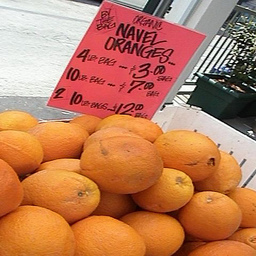 ORGANIC
NAVEL
ORANGES
4 LB. BAG -- $3.00 BAG
10 LB. BAG -- $7.00 BAG
2 10 LB. BAGS -- $12.00